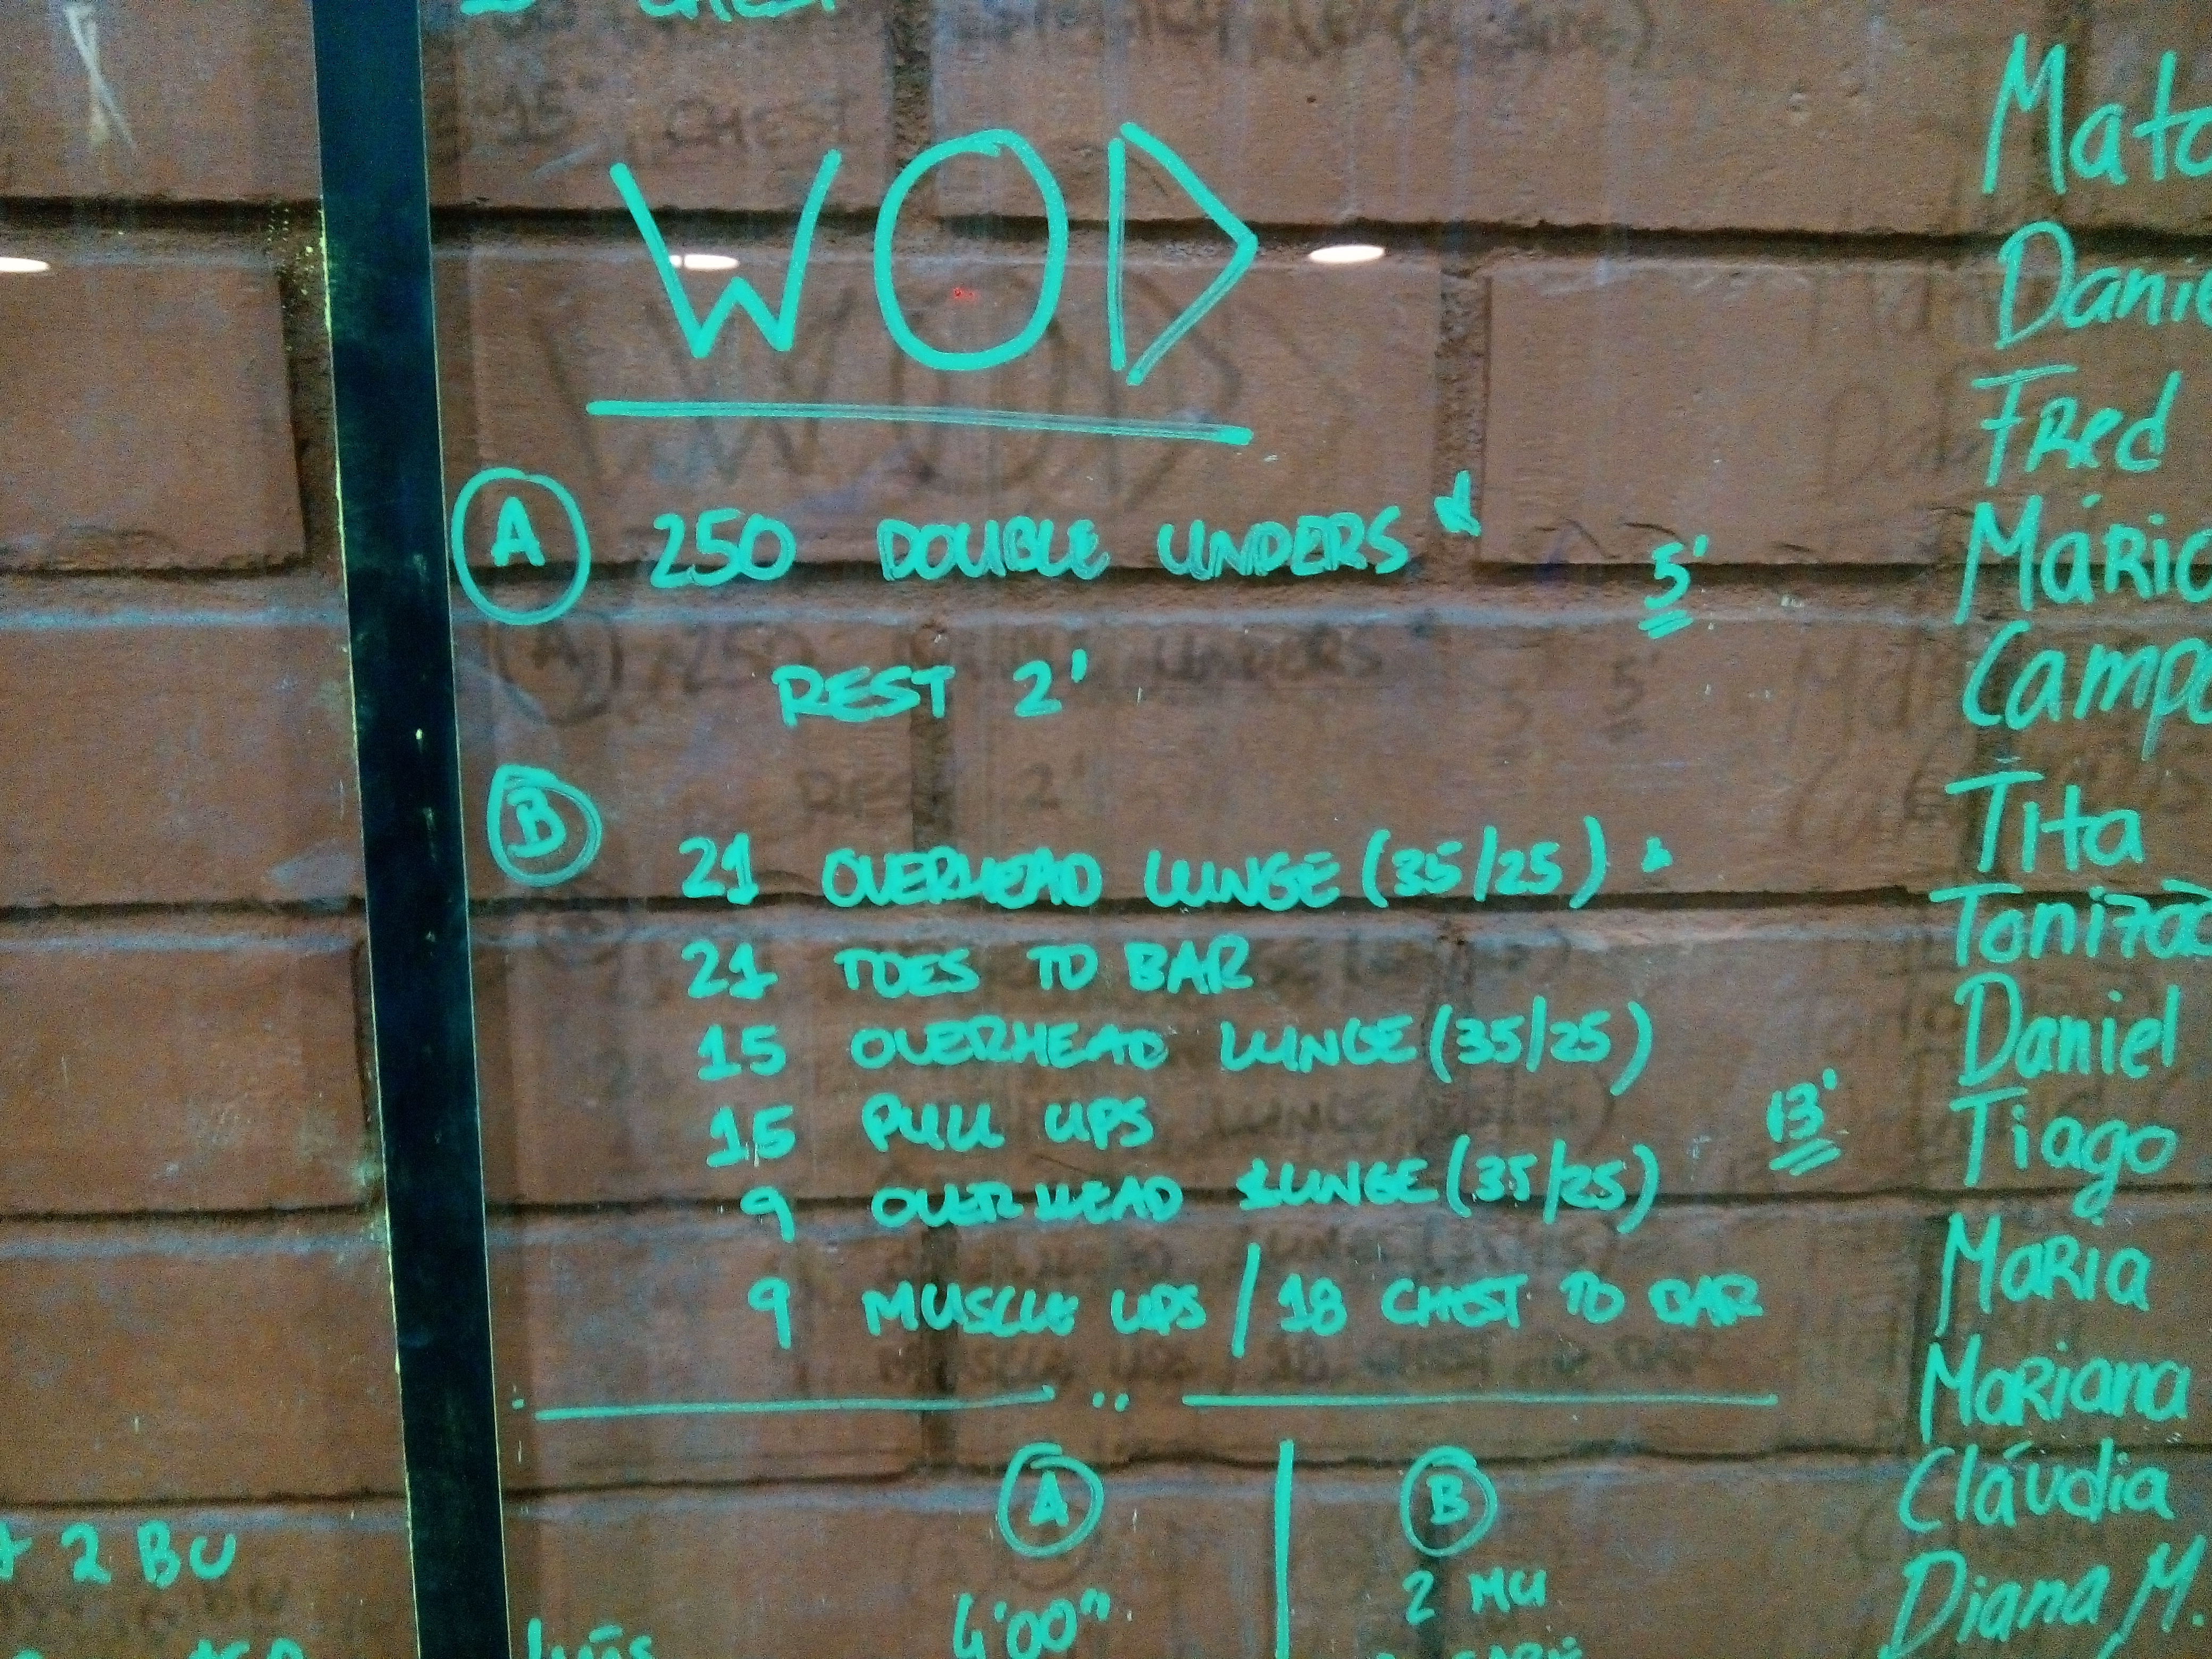 WOD
A 250 DOUBLE UNDERS * 5'
REST 2'
B
21 OVERHEAD LUNGE (35/25) *
21 TOES TO BAR
15 OVERHEAD LUNGE (35/25)
15 PULL UPS 13'
9 OVERHEAD LUNGE (35/25)
9 MUSCLE UPS / 18 CHEST TO BAR
A B
4'00" 2 MU
Luís
2 BU
Fred
Tita
Daniel
Tiago
Maria
Mariana
Cláudia
Diana M.